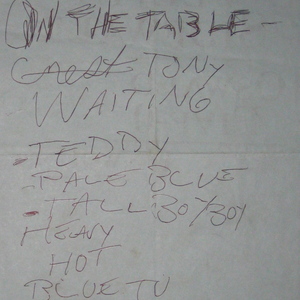 ON THE TABLE -
TONY
WAITING
- TEDDY
- PALE BLUE
- TALL BOY BOY
HEAVY
HOT
BLUE TV